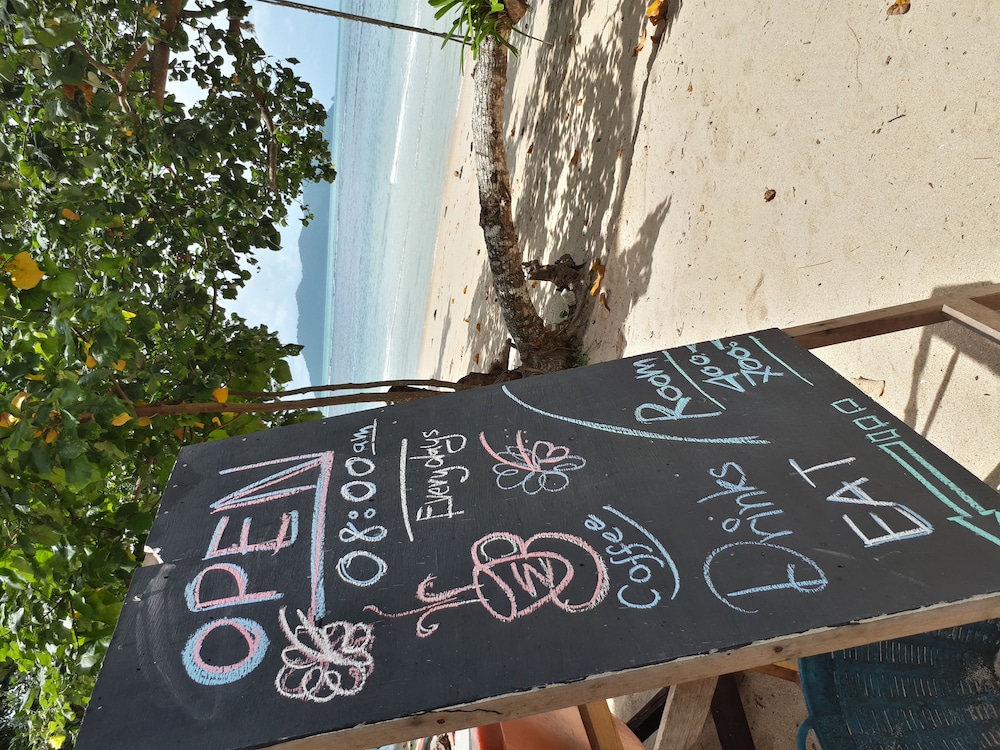 OPEN
08:00am
Everydays
Coffee
Drinks
Room
EAT